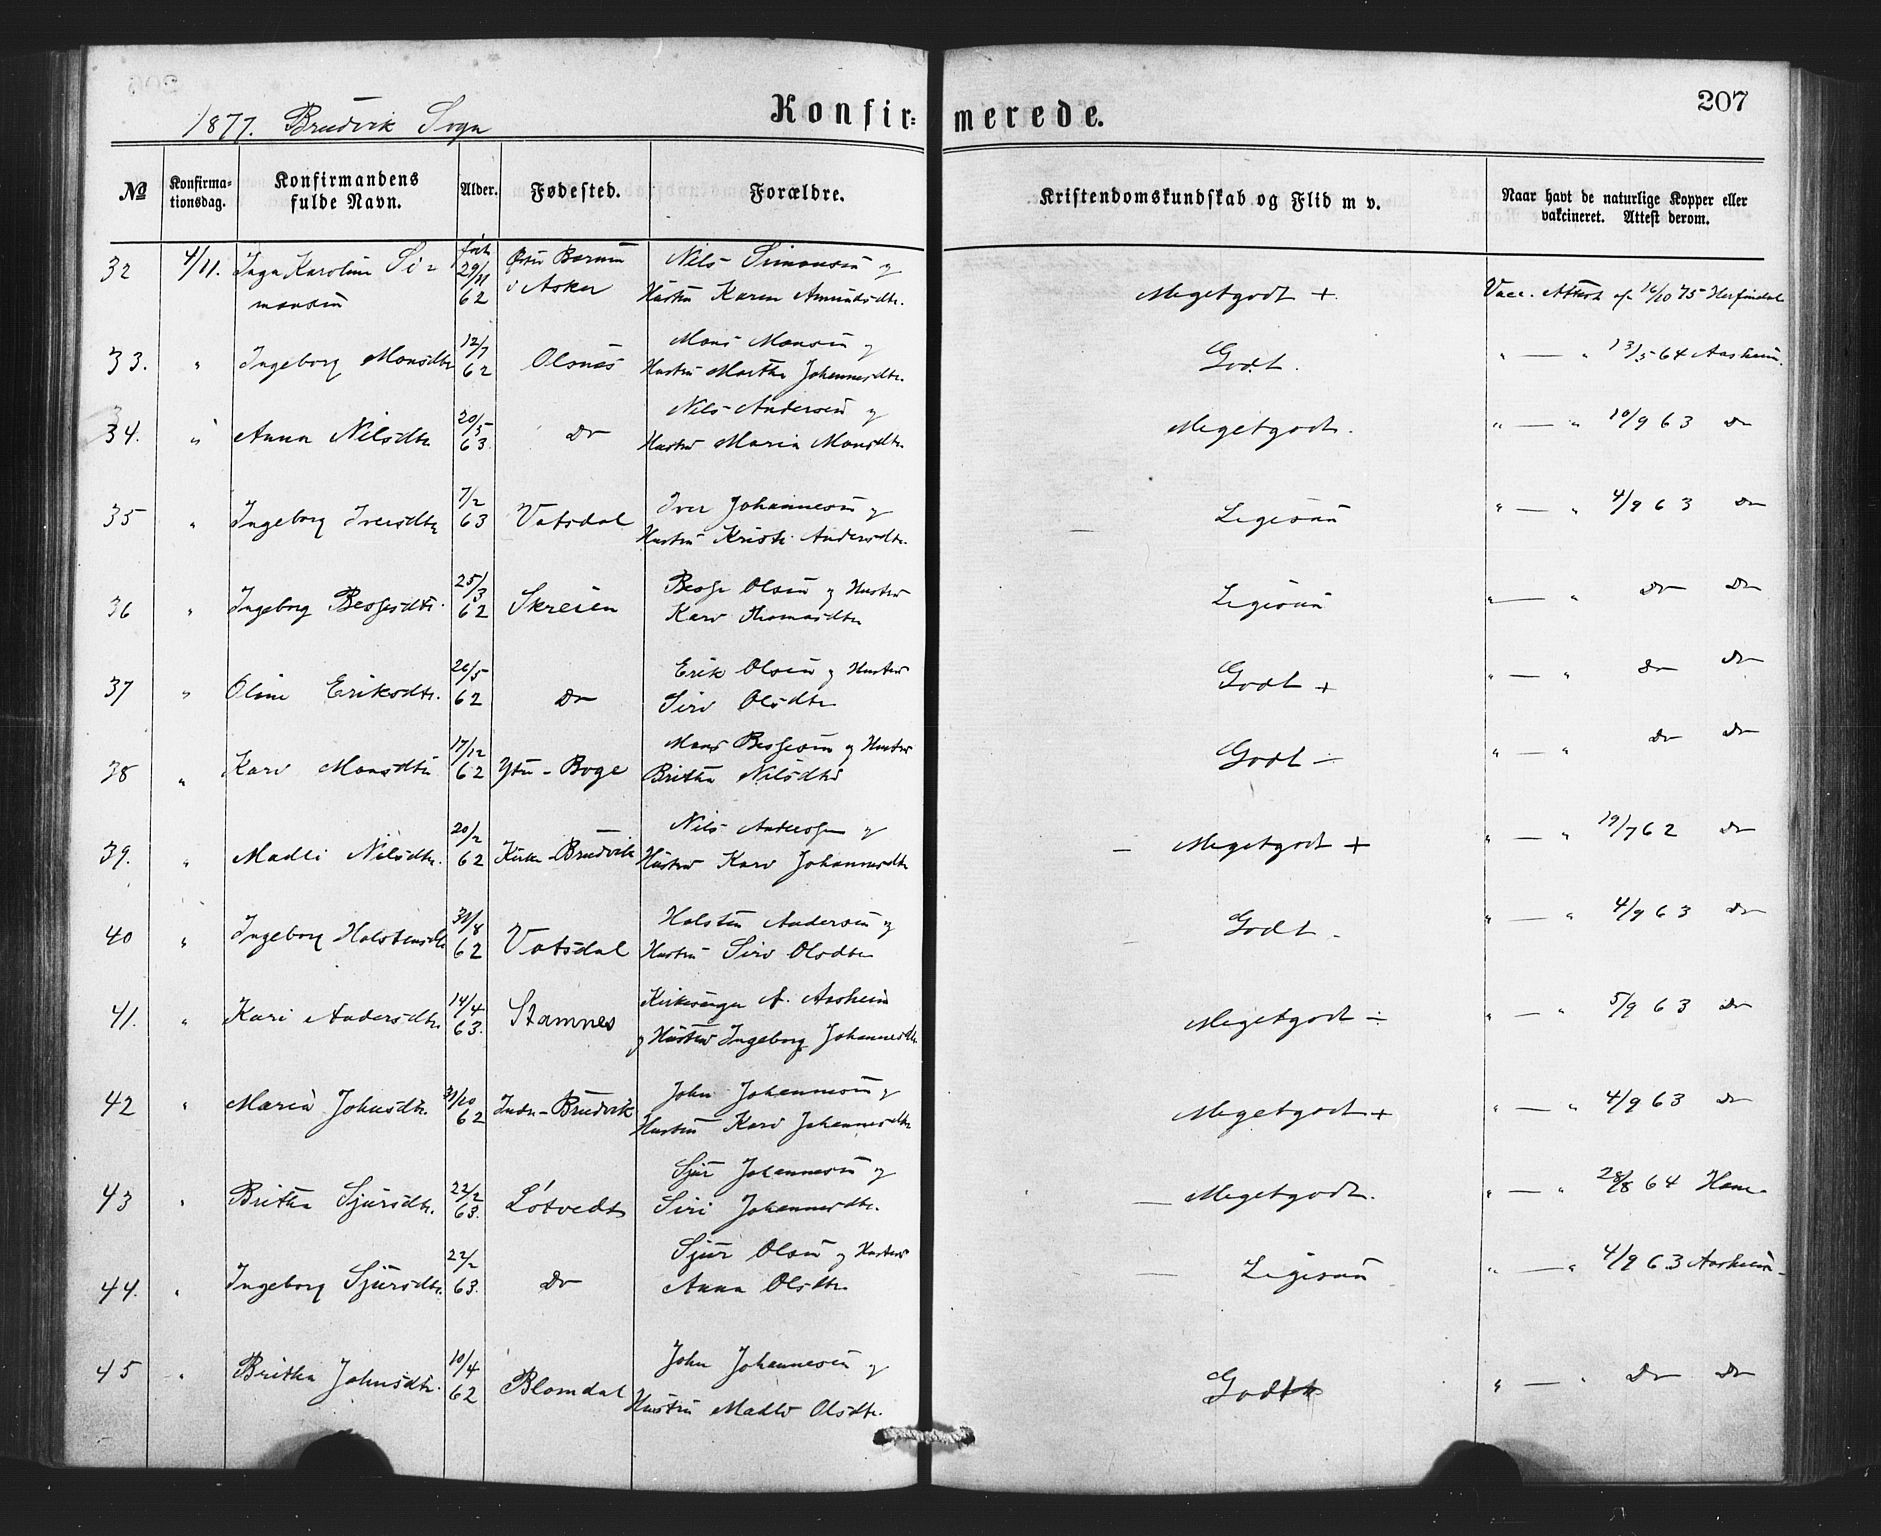 207
1877. Brudvik Sogn
Konfirmerede.
№ Konfirmationsdag. Konfirmandens fulde Navn. Alder. Fødested. Forældre. Kristendomskundskab og Flid m v. Naar havt de naturlige Kopper eller vakcineret. Attest derom.
32 4/11. Inga Karoline Si- født 29/11 Østre Bærum Nils Simonsen og
monsen 62 i Asker Hustru Karen Amundsdtr. Megetgodt + Vacc. Attest af 16/10 75 Herfindal
33. " Ingeborg Monsdtr 12/7 62 Olsnæs Mons Monsen og
Hustru Martha Johannesdtr. Godt. " — " 13/5 64 Aasheim.
34. " Anna Nilsdtr 20/5 63. Do Nils Andersen og
Hustru Maria Monsdtr. Megetgodt. " — " 10/9 63 Do
35 " Ingeborg Iversdtr 7/2 63 Vatsdal Iver Johannesen og
Hustru Kristi Andersdtr. Ligesaa " — " 4/9 63 Do
36 " Ingeborg Besgesdtr. 25/3 62 Skreien Besge Olsen og Hustru
Kari Thomasdtr Ligesaa " — " Do Do
37 " Oline Eriksdtr. 26/5 62 Do Erik Olsen og Hustru
Siri Olsdtr Godt + " — " Do Do
38 " Kari Monsdtr 17/12 62 Ytre-Boge Mons Besgesen og Hustru
Britha Nilsdtr Godt — " — " Do Do
39. " Madli Nilsdtr. 20/2 62 Kirke-Brudvik Nils Andersen og
Hustru Kari Johannesdtr — Megetgodt + " — " 19/7 62 Do
40 " Ingeborg Holstensdtr 31/8 62 Vatsdal Holsten Andersen og
Hustru Siri Olsdtr — Godt - " — " 4/9 63 Do
41. " Kari Andersdtr. 14/4 63. Stamnes Kirkesanger A. Aasheim
og Hustru Ingeborg Johannesdtr. Megetgodt ÷ " — " 5/9 63 Do
42 " Maria Johnsdtr. 31/10 62 Indre-Brudvik John Johannesen og
Hustru Kari Johannesdtr Megetgodt + " — " 4/9 63 Do
43 " Britha Sjursdtr. 22/2 63. Løtvedt Sjur Johannesen og
Siri Johannesdtr. — Megetgodt. " — " 28/8 64
44. " Ingeborg Sjursdtr. 22/2 63. Do Sjur Olsen og Hustru
Anna Olsdtr — Ligesaa " — " 4/9 63 Aasheim
45 " Britha Johnsdtr. 10/4 62 Blomdal John Johannesen og
Hustru Madli Olsdtr. Godt " — " Do Do